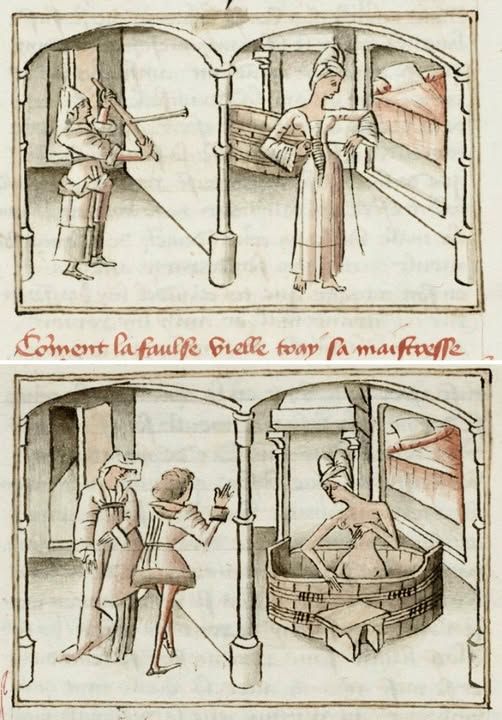 Coment la faulse vielle tray sa maistresse